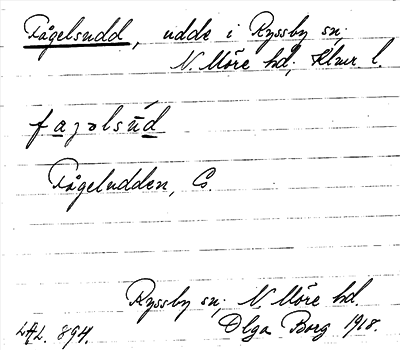 Fågelsudd, udde i Ryssby sn.
N. Möre hd; Klmr l.
fagəlsúd
Fågeludden, C.
Ryssby sn; N. Möre hd.
LAL. 894. Olga Borg 1918.